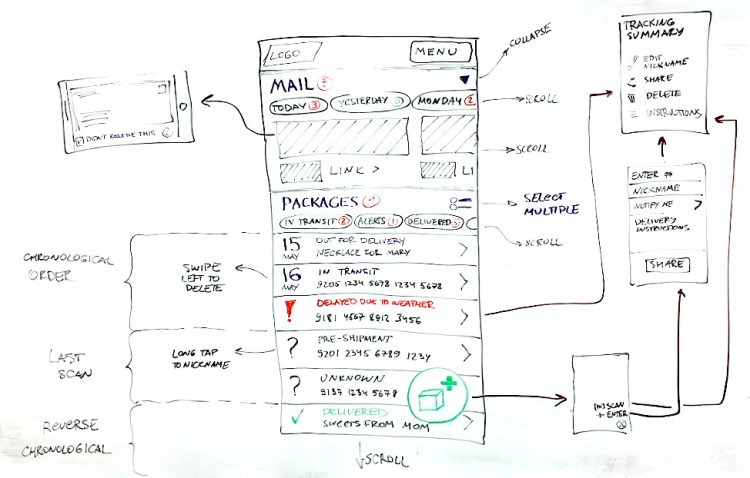 LOGO
MENU
COLLAPSE
MAIL
TODAY 3
YESTERDAY
MONDAY 2
SCROLL
SCROLL
LINK >
LI
DIDN'T RECEIVE THIS
PACKAGES
SELECT
MULTIPLE
IN TRANSIT 2
ALERTS 1
DELIVERED
SCROLL
15
MAY
OUT FOR DELIVERY
NECKLACE FOR MARY
16
MAY
IN TRANSIT
9205 1234 5678 1234 5678
!
DELAYED DUE TO WEATHER
9181 4567 8912 3456
?
PRE-SHIPMENT
9201 2345 6789 1234
?
UNKNOWN
9137 1234 5678
DELIVERED
SWEETS FROM MOM
SCROLL
CHRONOLOGICAL
ORDER
SWIPE
LEFT TO
DELETE
LAST
SCAN
LONG TAP
TO NICKNAME
REVERSE
CHRONOLOGICAL
TRACKING
SUMMARY
EDIT
NICKNAME
SHARE
DELETE
INSTRUCTIONS
ENTER #
NICKNAME
NOTIFY ME
DELIVERY
INSTRUCTIONS
SHARE
SCAN
+ ENTER